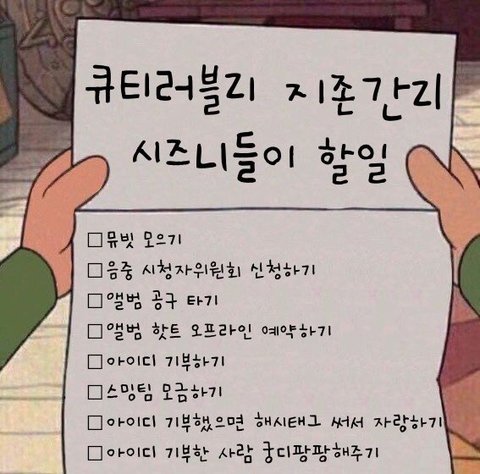 큐티러블리 지존간리
시즈니들이 할일
□뮤빗 모으기
□음중 시청자위원회 신청하기
□앨범 공구 타기
□앨범 핫트 오프라인 예약하기
□아이디 기부하기
□스밍팀 모금하기
□아이디 기부했으면 해시태그 써서 자랑하기
□아이디 기부한 사람 궁디팡팡해주기